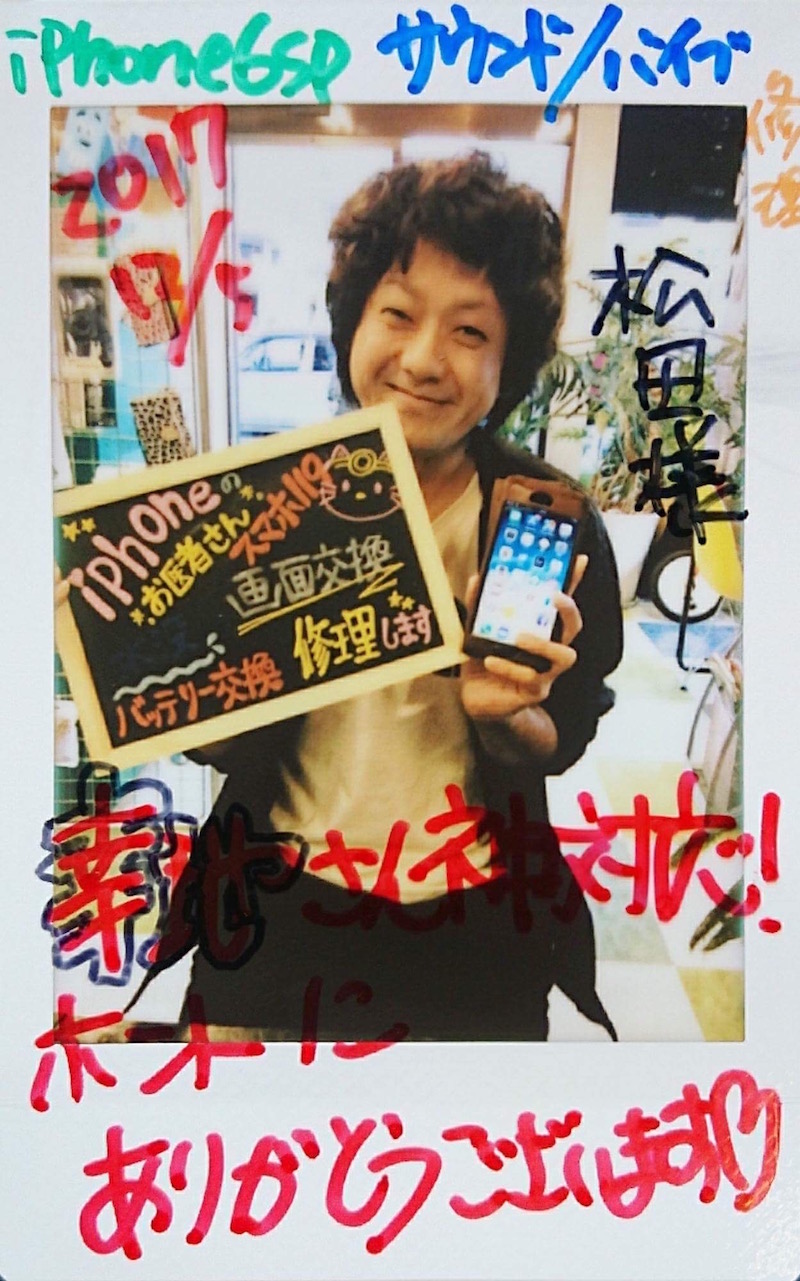 iPhone6sp サウンド/バイブ
修理
2017
松田様
iphoneの
お医者さん
スマホ119
画面交換
バッテリー交換
修理します
幸地さん神対応!
ホントに
ありがとうございます♡